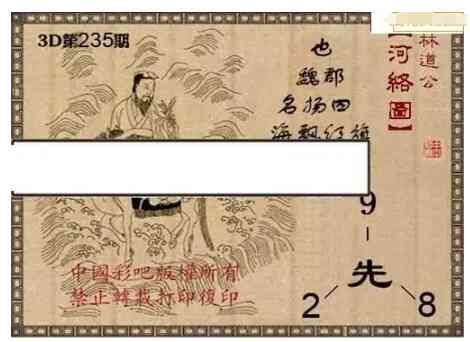 3D第235期
林道公
【河絡圖】
也
魏郡
名扬四
海飘红旗
9
先
2
8
中國彩吧版權所有
禁止轉載打印復印